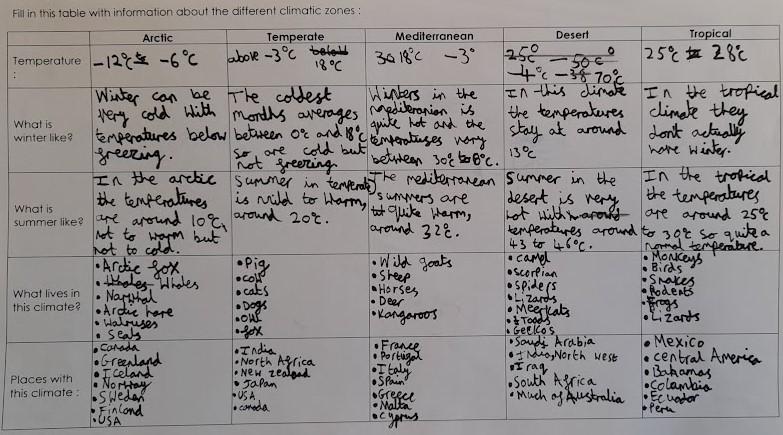 Fill in this table with information about the different climatic zones :
Arctic
Temperate
Mediterranean
Desert
Tropical
Temperature
:
-12°c to -6°c
above -3°c below
18°c
30 18°c -3°
25° -50 c°
-4°c -38 70°c
25°c to 28°c
What is
winter like?
Winter can be
very cold with
temperatures below
freezing.
The coldest
months averages
between 0°c and 18°c
so are cold but
not freezing
Winters in the
mediteranion is
quite hot and the
temperatuses vary
between 30c to 8°c.
In this climate
the temperatures
stay at around
13°c
In the tropical
climate they
dont actually
have winter.
What is
summer like?
In the arctic
the temperatures
are around 10°c,
not to warm but
not to cold.
Summer in temperate
is mild to Warm,
around 20°c.
The mediterranean
summers are
quite warm,
around 32°c.
Summer in the
desert is very
hot with around
temperatures around
43 to 46°c.
In the tropical
the temperatures
are around 25°c
to 30°c so quite a
normal temperature.
What lives in
this climate?
• Arctic fox
• Whales Whales
• Narwhal
• Arctic hare
• Walruses
• Seals
• Pig
• cow
• cats
• Dogs
• Owl
• fox
• Wild goats
• Sheep
• Horses
• Deer
• Kangaroos
• camel
• scorpian
• Spiders
• Lizards
• Meerkats
• Toads
• Geckos
• Monkeys
• Birds
• Snakes
• Rodents
• Frogs
• Lizards
Places with
this climate :
• Canada
• Greenland
• Iceland
• Norway
• Sweden
• Finland
• USA
• India
• North Africa
• New zealand
• Japan
• USA
• canada
• France
• Portigal
• Italy
• Spain
• Greece
• Malta
• Cyprus
• Saudi Arabia
• India, North west
• Iraq
• South Africa
• Much of Australia
• Mexico
• central America
• Bahamas
• Colombia
• Ecuador
• Peru